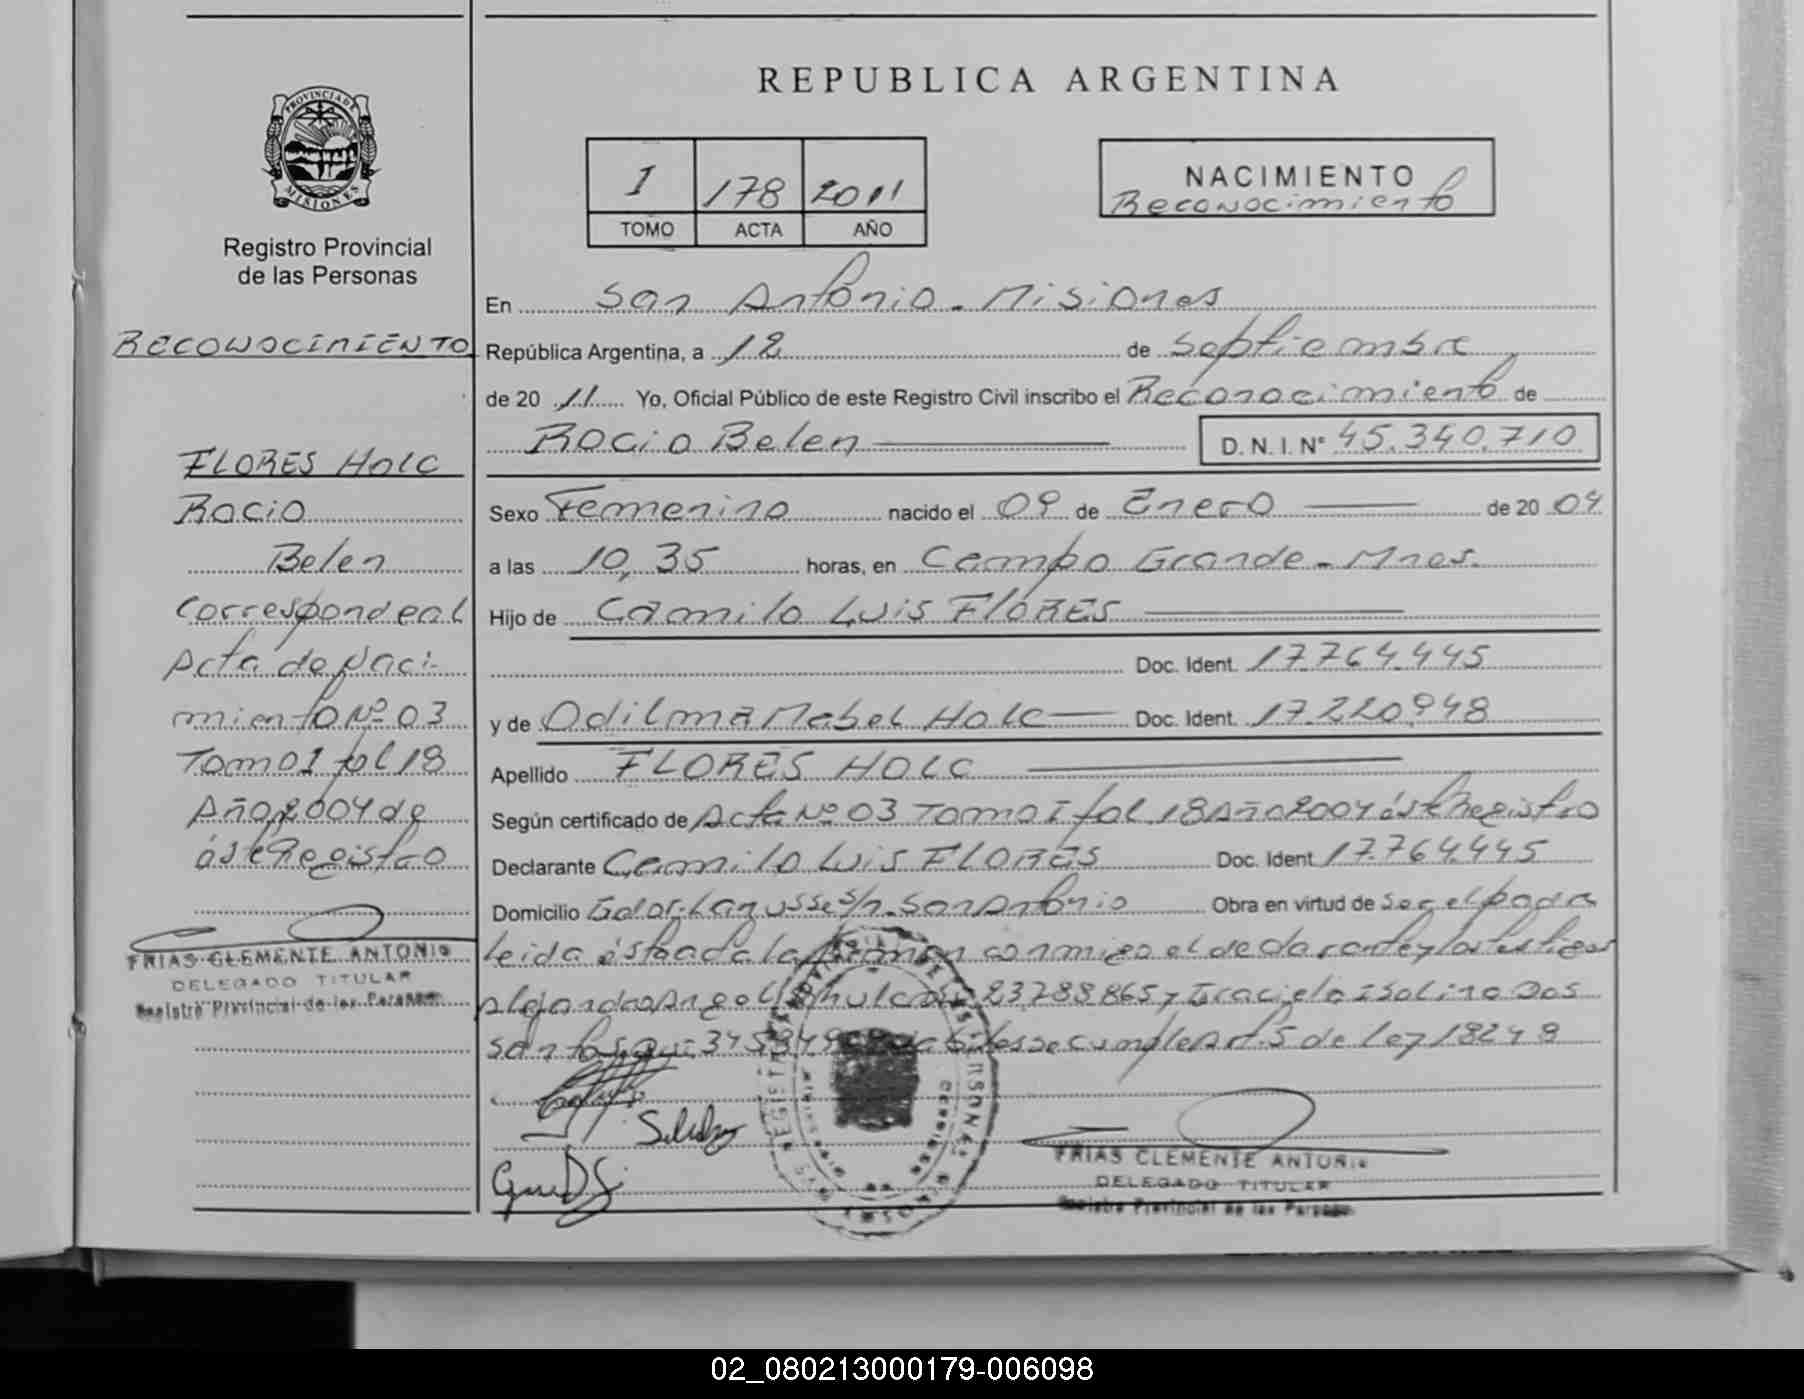 REPUBLICA ARGENTINA
PROVINCIA DE MISIONES
Registro Provincial
de las Personas
I 178 2011
TOMO ACTA AÑO
NACIMIENTO
Reconocimiento
RECONOCIMIENTO
FLORES HOLC
Rocio
Belen
Corresponde al
Acta de Naci-
miento Nº 03
Tomo I fol 18
Año 2004 de
éste Registro
FRIAS CLEMENTE ANTONIO
DELEGADO TITULAR
Registro Provincial de las Personas
En San Antonio - Misiones
República Argentina, a 12 de Septiembre
de 20 11 Yo, Oficial Público de este Registro Civil inscribo el Reconocimiento de
Rocio Belen D.N.I. Nº 45.340.710
Sexo Femenino nacido el 09 de Enero de 20 04
a las 10,35 horas, en Campo Grande - Mnes.
Hijo de Camilo Luis FLORES
Doc. Ident. 17.764.445
y de Odilma Mabel HOLC Doc. Ident. 17.220.948
Apellido FLORES HOLC
Según certificado de Acta Nº 03 Tomo I fol. 18 Año 2004 éste Registro
Declarante Camilo Luis FLORES Doc. Ident 17.764.445
Domicilio Gdor. Lanusse s/n. San Antonio Obra en virtud de ser el padre
leida ésta acta la firman conmigo el declarante y los testigos
23.788.865 y Isolina Dos
Santos se cumple Art. 5 de Ley 18248
FRIAS CLEMENTE ANTONIO
DELEGADO TITULAR
Registro Provincial de las Personas
02_080213000179-006098